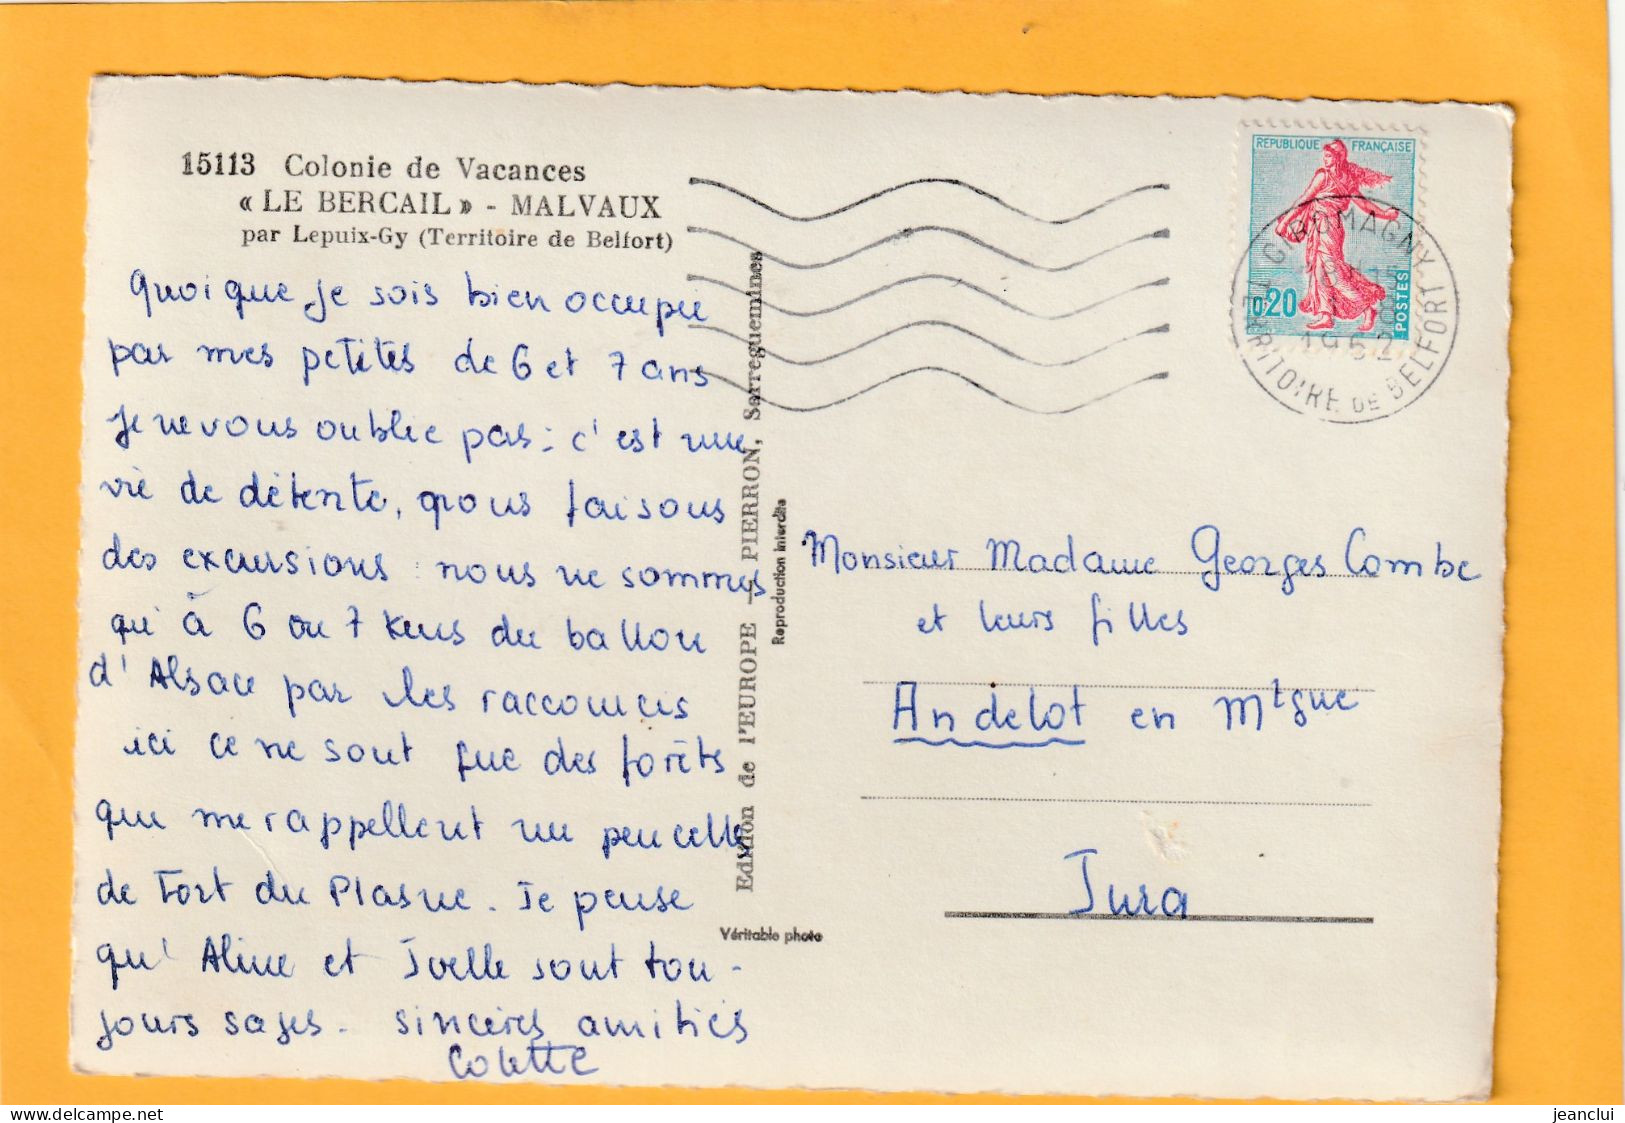 15113 Colonie de Vacances
« LE BERCAIL » - MALVAUX
par Lepuix-Gy (Territoire de Belfort)
Quoique je sois bien occupée
par mes petites de 6 et 7 ans
je ne vous oublie pas : c'est une
vie de détente, nous faisons
des excursions : nous ne sommes
qu'à 6 ou 7 kms du ballon
d'Alsace par les raccourcis
ici ce ne sont que des forêts
qui me rappellent un peu celle
de Fort du Plasne. Je pense
qu'Aline et Joelle sont tou-
jours sages. sincères amitiés
Colette
Edition de l'EUROPE — PIERRON, Sarreguemines
Reproduction interdite
Véritable photo
REPUBLIQUE FRANÇAISE
0,20
POSTES
GIROMAGNY
1962
TERRITOIRE DE BELFORT
Monsieur Madame Georges Combe
et leurs filles
Andelot en Mtgne
Jura
delcampe.net
jeanclui